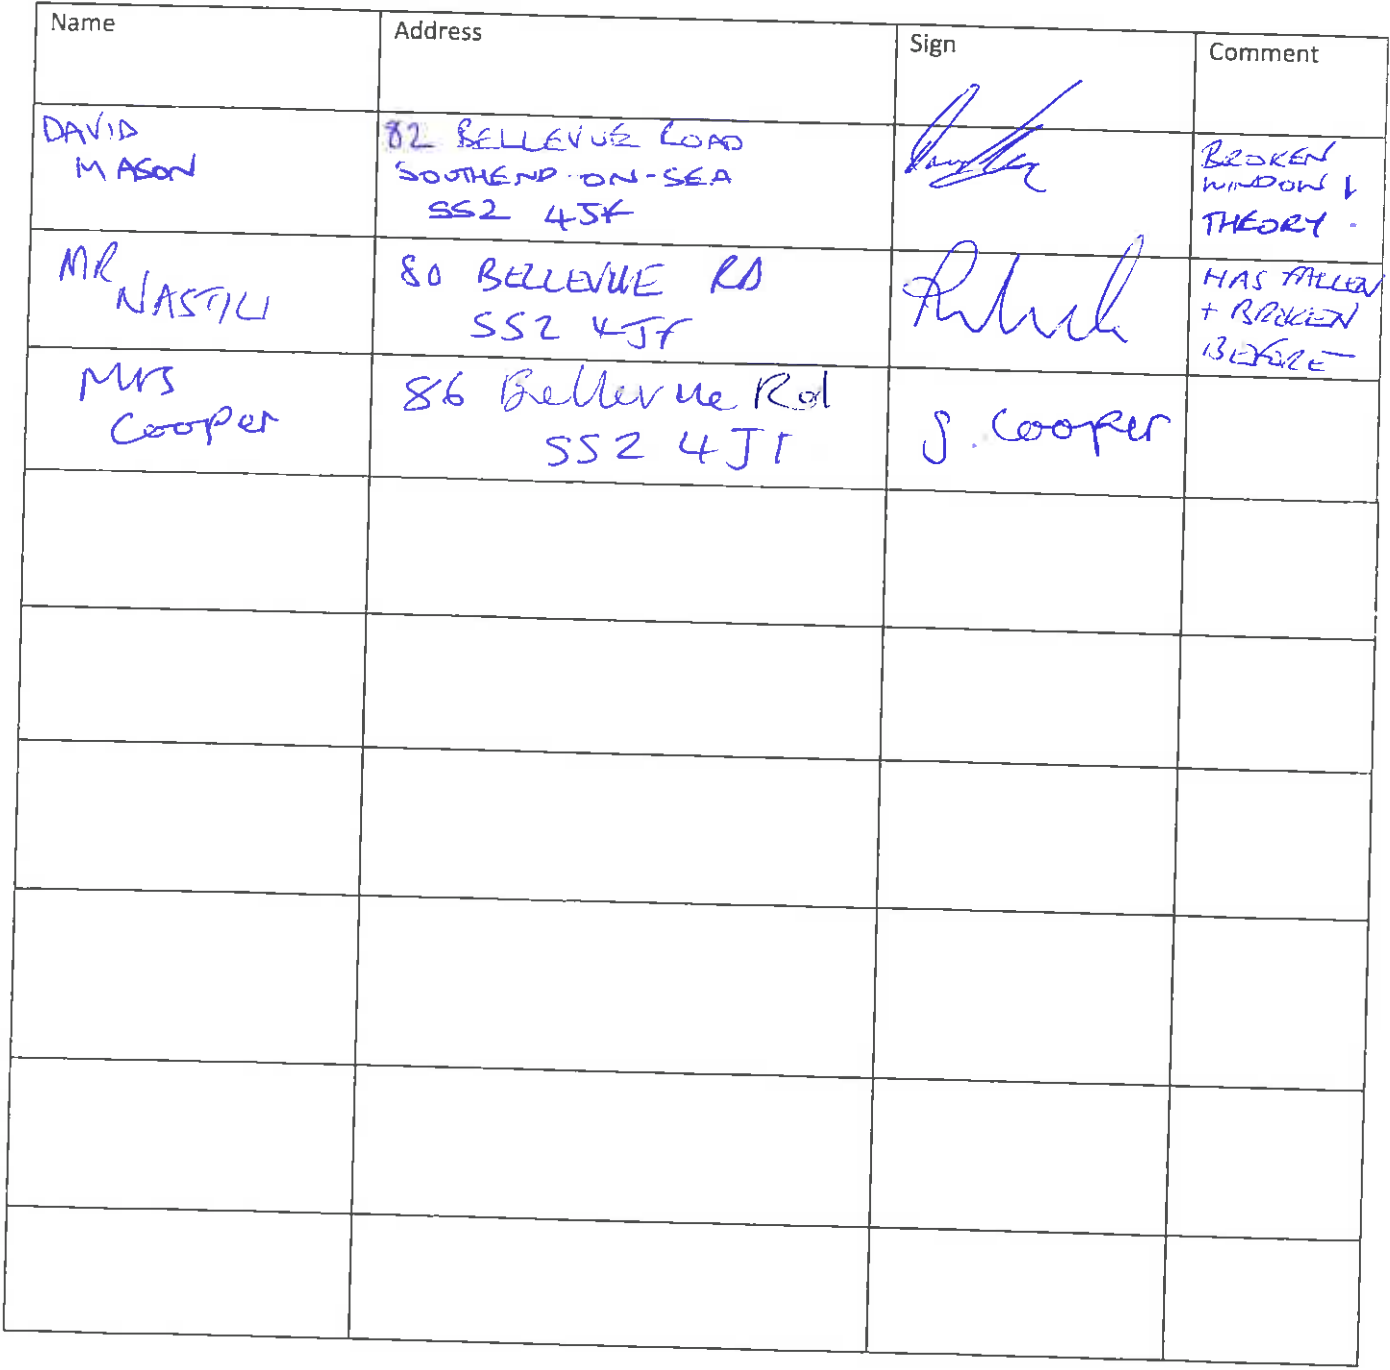 Name Address Sign Comment
DAVID
MASON
82 BELLEVUE ROAD
SOUTHEND-ON-SEA
SS2 4JF
BROKEN
WINDOW
THEORY.
MR
80 BELLEVUE RD
SS2 4JF
HAS FALLEN
+ BROKEN
BEFORE
Mrs
Cooper
86 Bellevue Rd
SS2 4J
J. Cooper